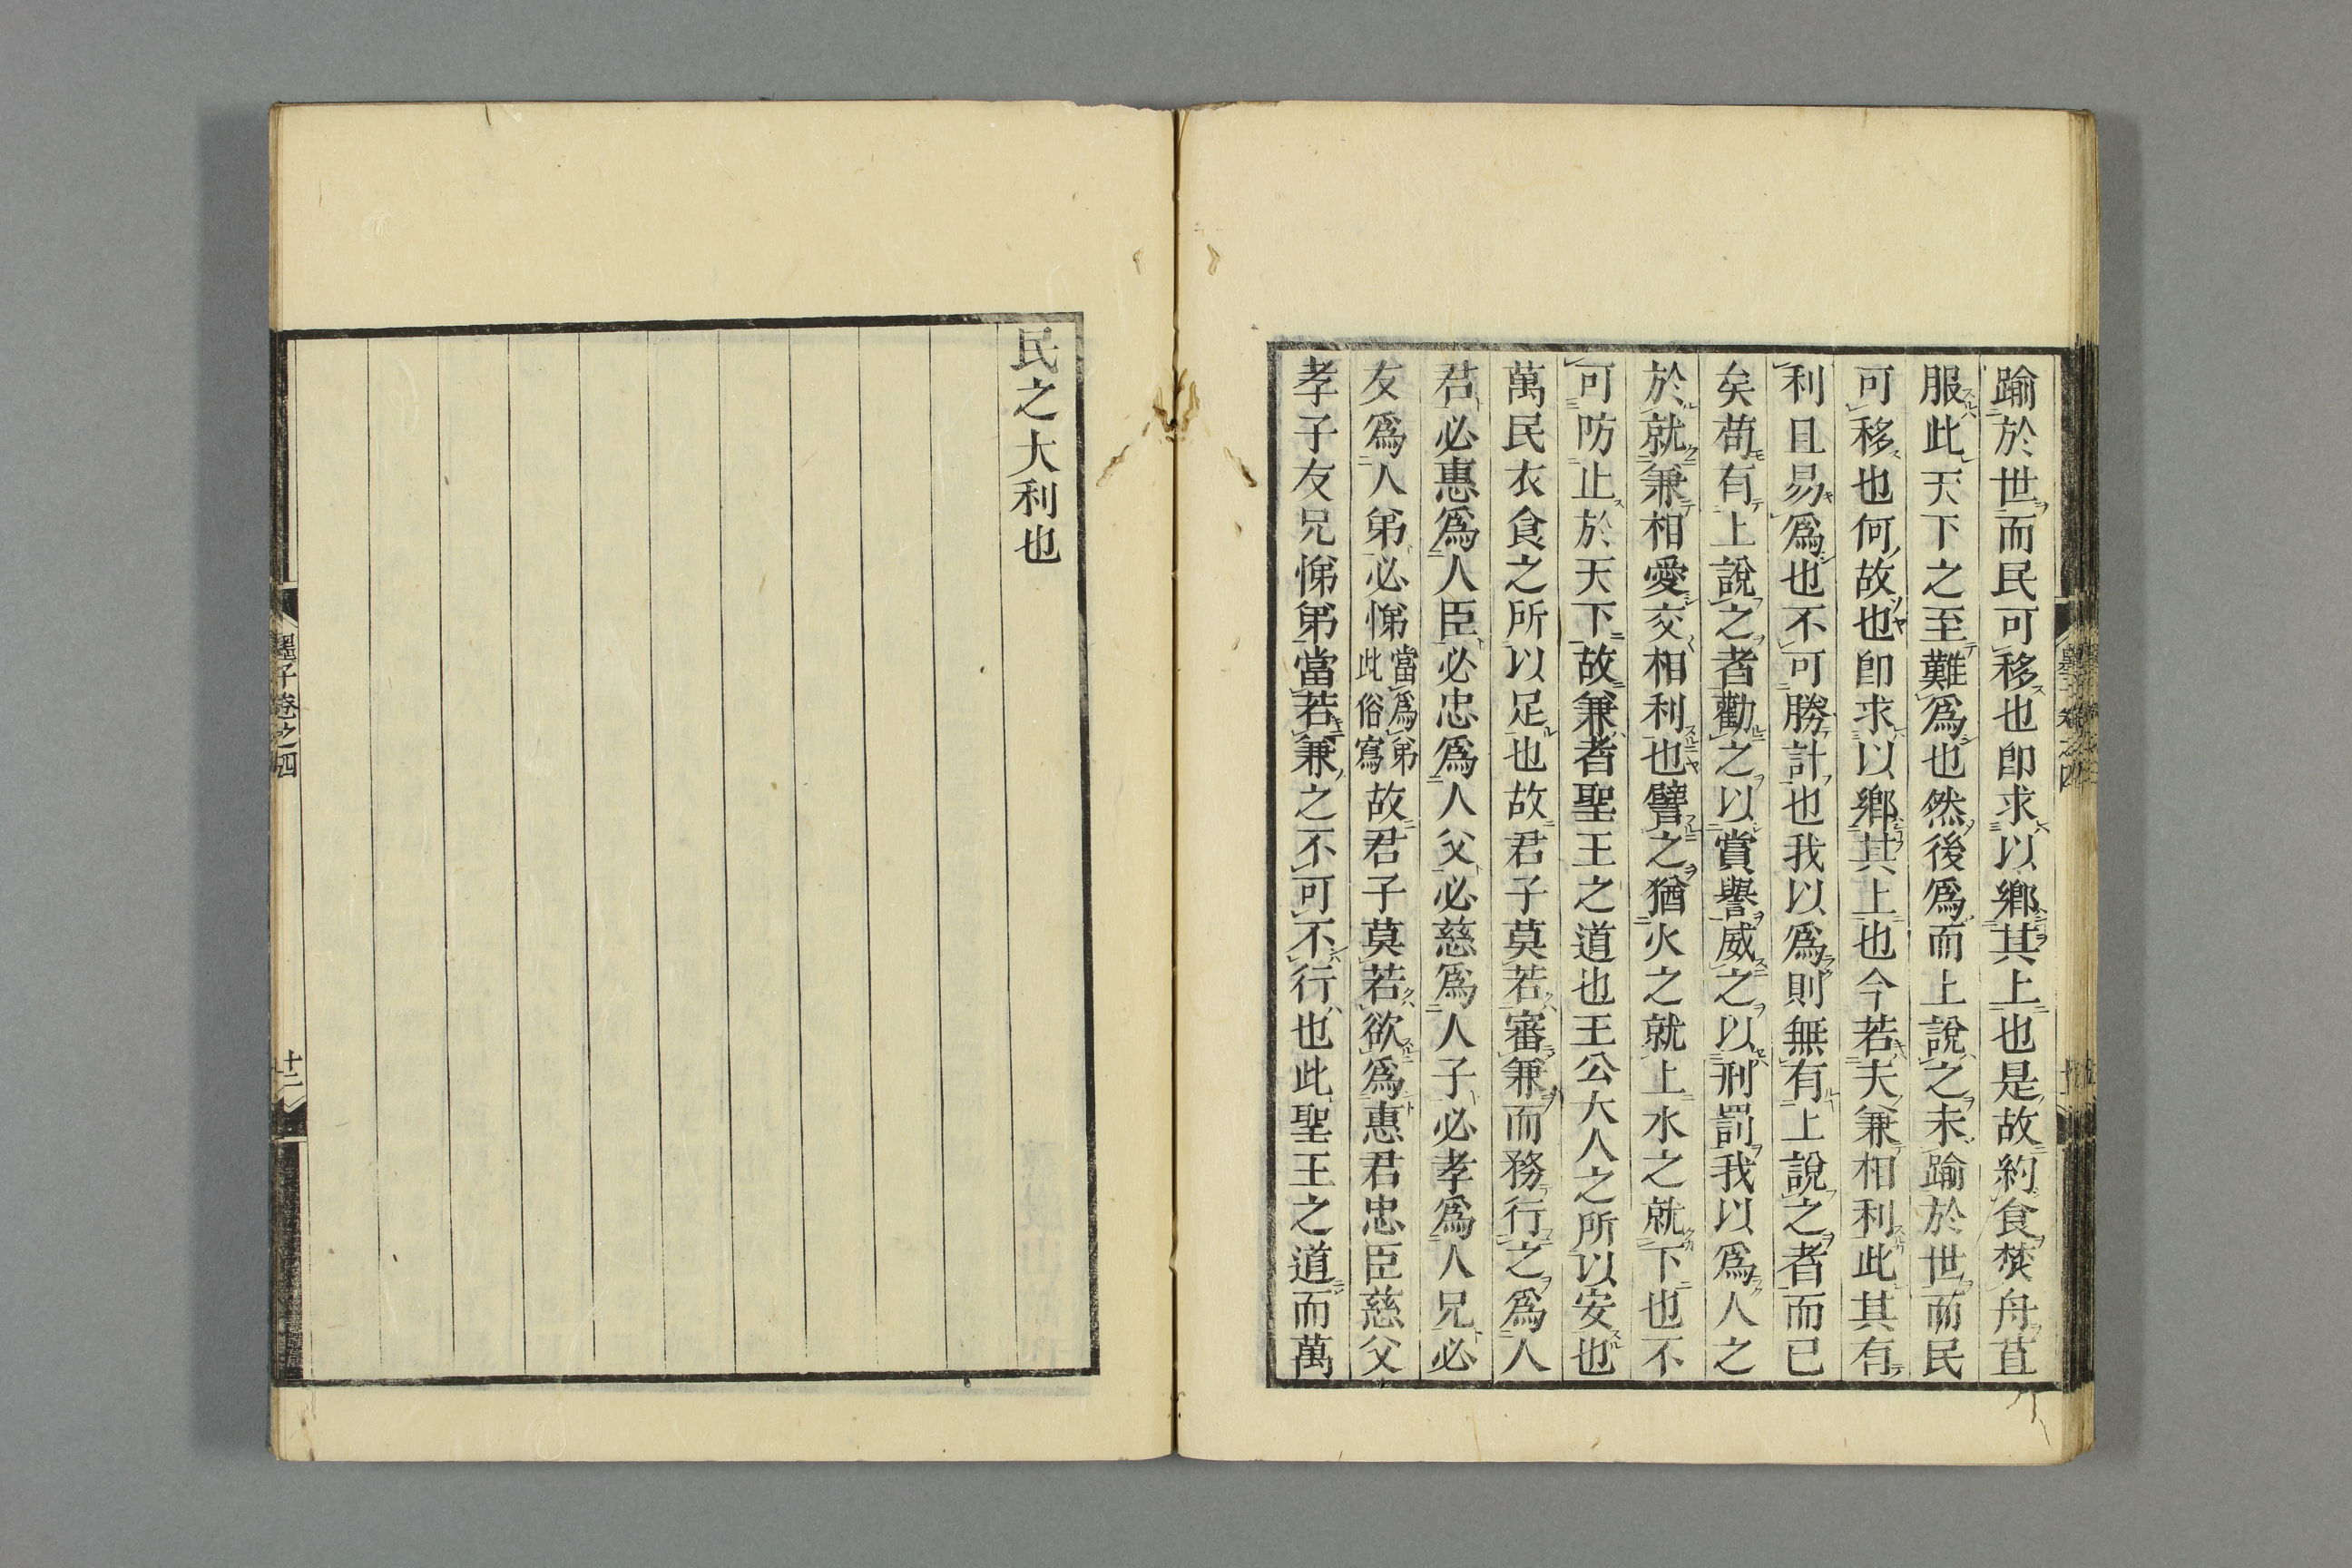 踰於世而民可移也卽求以鄉其上也是故約食焚舟苴
服此天下之至難爲也然後爲而上說之未踰於世而民
可移也何故也卽求以鄉其上也今若夫兼相利此其有
利且易爲也不可勝計也我以爲則無有上說之者而已
矣苟有上說之者勸之以賞譽威之以刑罰我以爲人之
於就兼相愛交相利也譬之猶火之就上水之就下也不
可防止於天下故兼者聖王之道也王公大人之所以安也
萬民衣食之所以足也故君子莫若審兼而務行之爲人
君必惠爲人臣必忠爲人父必慈爲人子必孝爲人兄必
友爲人弟必悌當爲弟此俗寫故君子莫若欲爲惠君忠臣慈父
孝子友兄悌弟當若兼之不可不行也此聖王之道而萬
民之大利也
墨子卷之四
十二